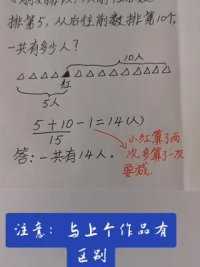 排第5，从右往前数排第10个，
一共有多少人？
10人
红
5人
5+10-1=14(人)
15
答：一共有14人。
小红算了两
次，多算了一次
要减。
注意：与上个作品有
区别